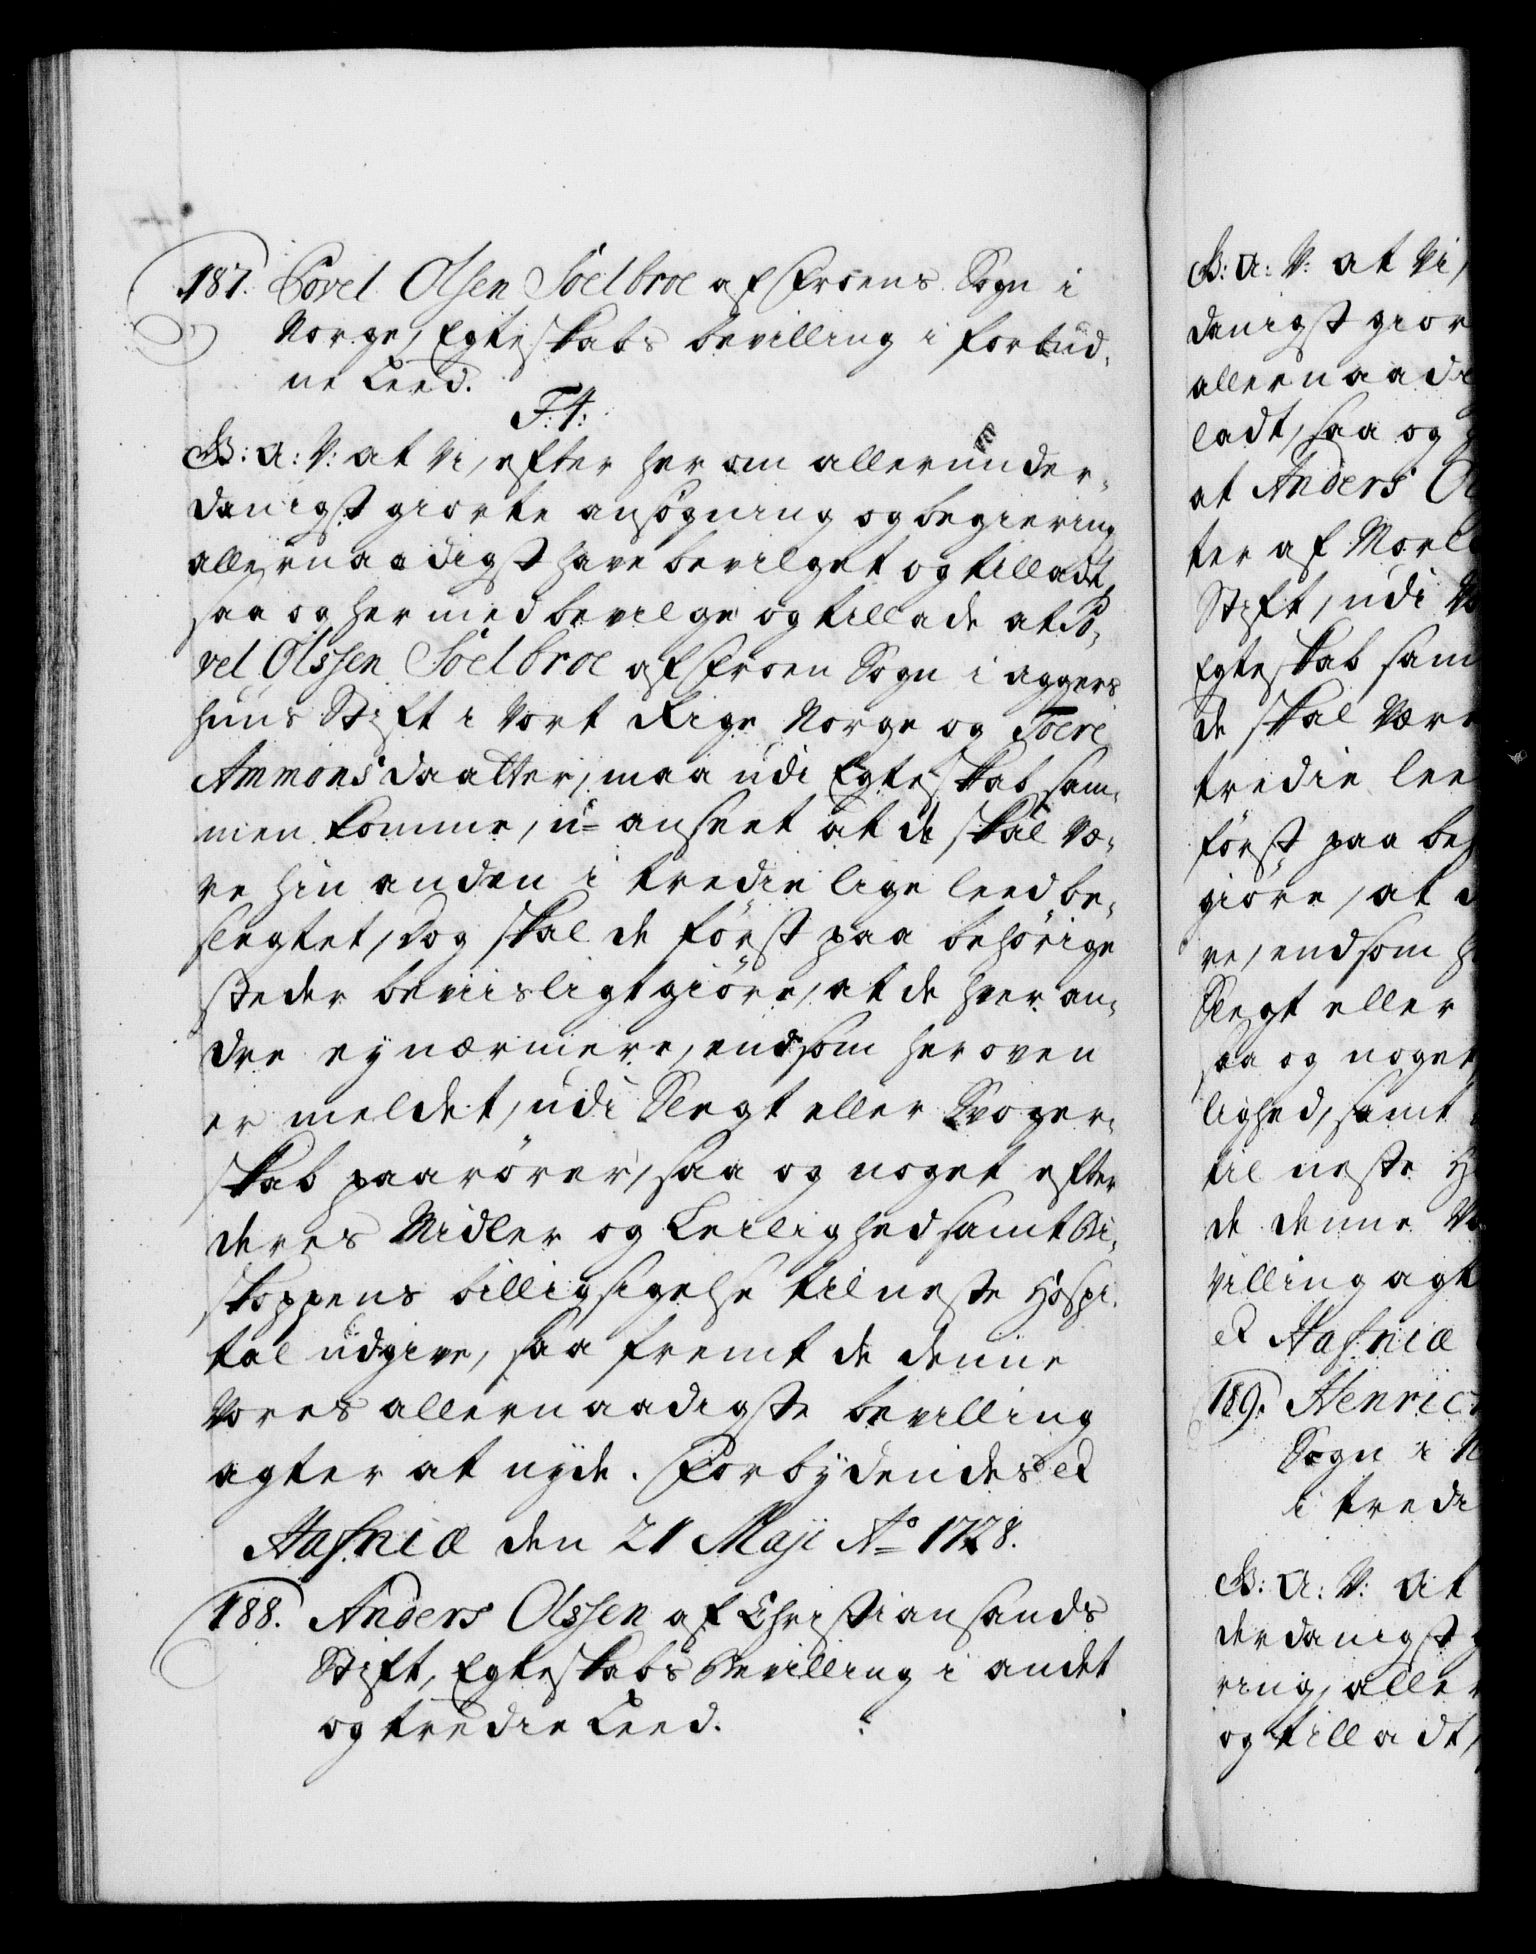 187. Povel Olsen Soelbroe af Froens Sogn i
Norge, Egteskabs bevilling i forbud-
ne Leed.
F: 4:
G: A: V: at Vi, efter her om allerunder-
danigst giorte ansøgning og begiering
allernaadigst have bevilget og tilladt,
saa og hermed bevilge og tillade at Po-
vel Olssen Soelbroe af Froen Sogn i Aggers
huus Stift i Vort Rige Norge og Toere
Ammonsdaatter, maa udi Egteskab sam-
men komme, u-anseet at de skal væ-
re hin anden i tredie lige leed be-
slegtet, dog skal de først paa behørige
steder beviisligtgiøre, at de hver an-
dre ey nærmere, end som her oven
er meldet, udi Slegt eller Svoger-
skab paarører, saa og noget efter
deres Midler og Leilighed samt Bi-
skoppens billigsigelse til neste Hospi-
tal udgive, saa fremt de denne
Vores allernaadigste bevilling
agter at nyde. Forbydendes et
Hafniæ den 21 Maji Ao 1728.
188. Anders Olssen af Christiansands
Stift, Egteskabs Bevilling i andet
og tredie Leed.
G: A: V: at Vi,
danigst gior
allernaadi
ladt, saa og
at Anders Ol
ter af
Stift, udi
Egteskab sam
de skal være
tredie lee
først paa beh
giøre, at d
re, end som h
Slegt eller
saa og noget
lighed, samt
til neste H
de denne V
villing agt
et Hafniæ
189. Henric
Sogn i N
i tredi
G: A: V: at
derdanigst g
ring, aller
og tilladt,